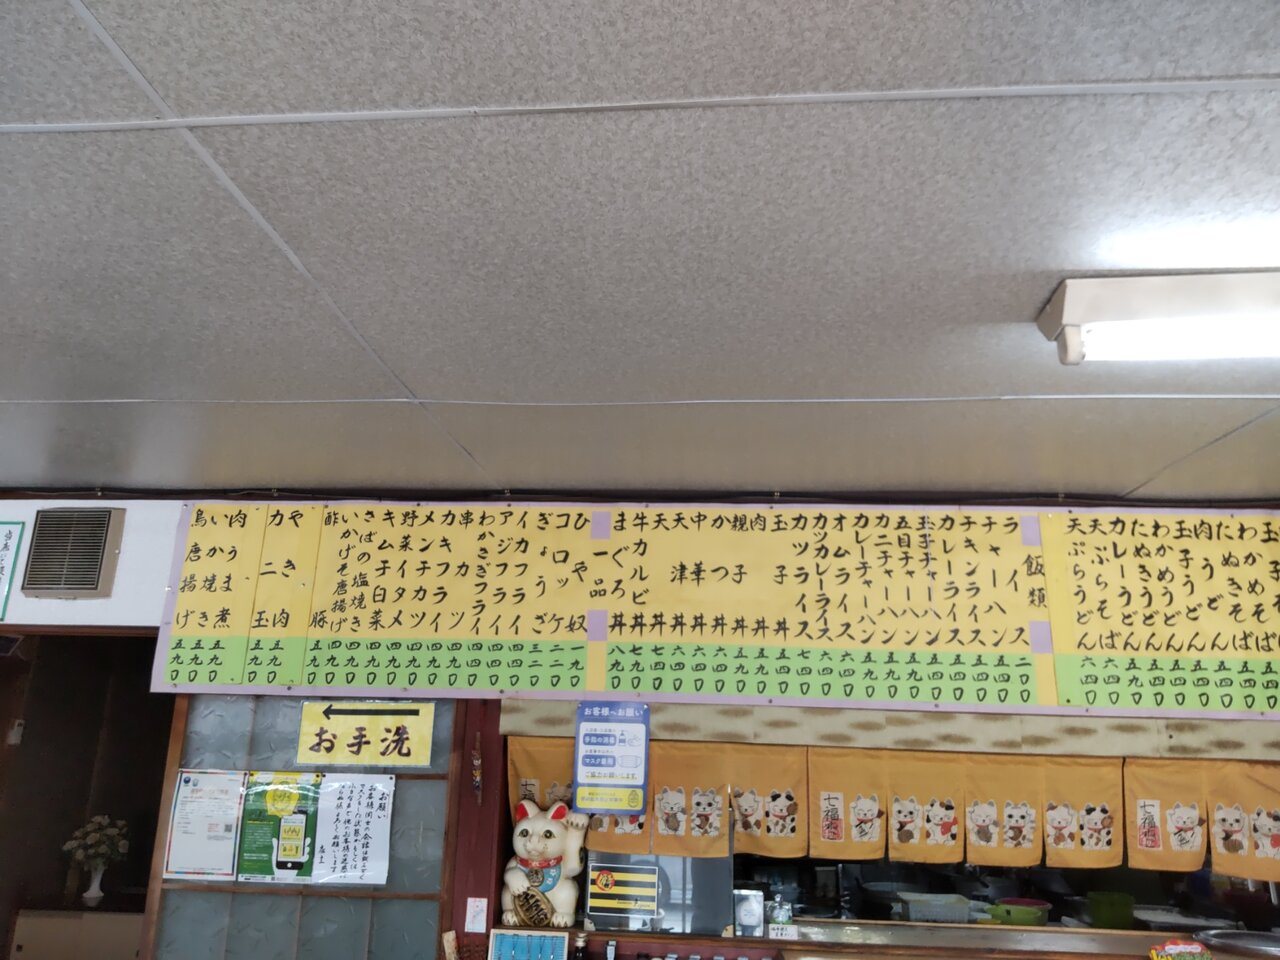 わかめそば
たぬきそば
肉うどん
玉子うどん
わかめうどん
たぬきうどん
カレーうどん
天ぷらそば 六四〇
天ぷらうどん 六四〇
飯類
ライス 二一〇
チャーハン 五四〇
チキンライス 五四〇
カレーライス 五四〇
玉子チャーハン 五四〇
五目チャーハン 五九〇
カニチャーハン 五九〇
カレーチャーハン 五九〇
オムライス 六四〇
カツカレーライス 六四〇
カツライス 七四〇
玉子丼 五四〇
肉丼 五九〇
親子丼 五九〇
かつ丼 六四〇
中華丼 六四〇
天津丼 六四〇
天丼 七四〇
牛カルビ丼 七九〇
まぐろ丼 八九〇
一品
ひや奴 一九〇
コロッケ 二四〇
ぎょうざ 三二〇
イカフライ 四四〇
アジフライ 四四〇
わかさぎフライ 四四〇
串カツ 四九〇
カキフライ 四九〇
メンチカツ 四四〇
野菜イタメ 四四〇
キムチ白菜 四四〇
さばの塩焼き 四四〇
いかげそ唐揚げ 四九〇
酢豚 五九〇
やき肉 五九〇
カニ玉 五九〇
肉うま煮 五九〇
いか焼き 五九〇
鳥唐揚げ 五九〇
お手洗
お客様へお願い
手指の消毒
マスク着用
ご協力お願いします。
お願い
店主
七福ねこ
七福ねこ